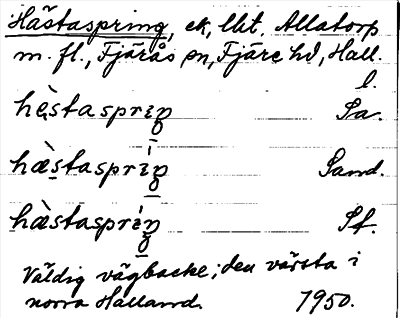 Hästaspring, ek, lht. Allatorp
m. fl., Fjärås sn, Fjäre hd, Hall.
l.
hèstaspriŋ Sa.
hæ̀staspriŋ Sand.
hæ̀staspriŋ Sf.
Väldig vägbacke; den värsta i
norra Halland. 1950.